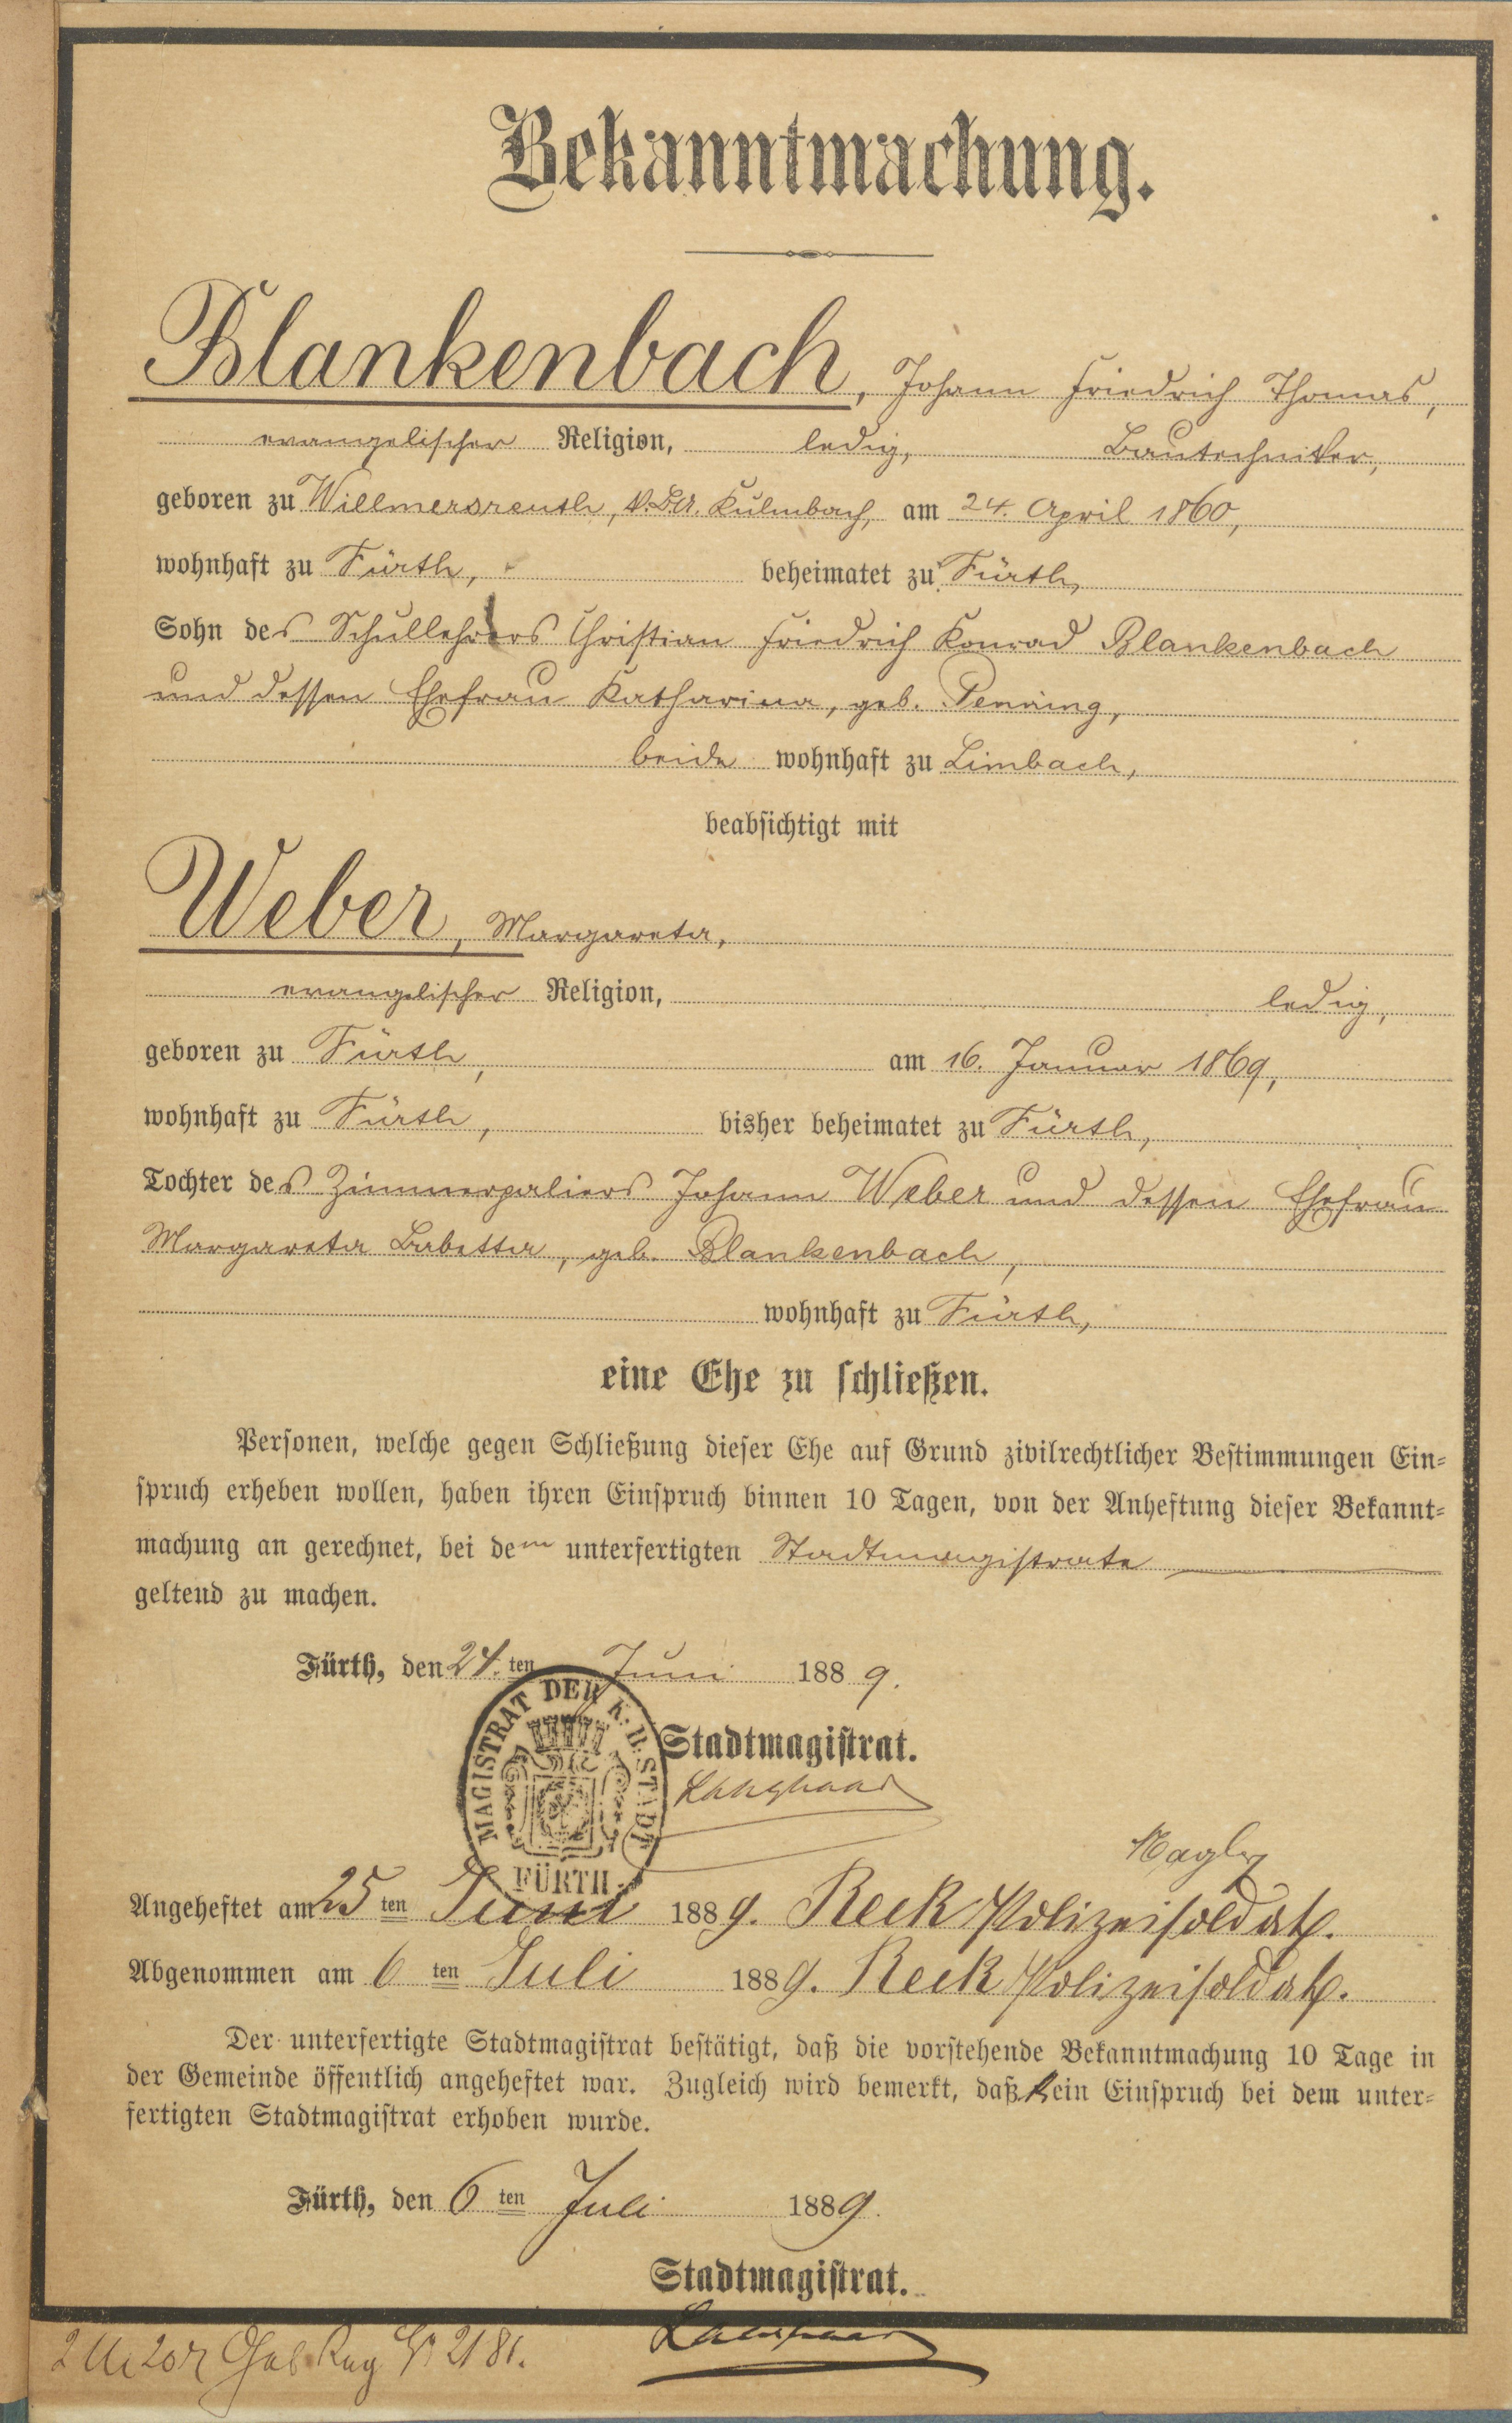 Bekanntmachung.
Blankenbach, Johann Friedrich Thomas,
evangelischer Religion, ledig, Bautechniker,
geboren zu Willmersreuth, k. B.A. Kulmbach, am 24. April 1860,
wohnhaft zu Fürth, beheimatet zu Fürth,
Sohn des Schullehrers Christian Friedrich Konrad Blankenbach
und dessen Ehefrau Katharina, geb. Penning,
beide wohnhaft zu Limbach,
beabsichtigt mit
Weber, Margareta,
evangelischer Religion, ledig,
geboren zu Fürth, am 16. Januar 1869,
wohnhaft zu Fürth, bisher beheimatet zu Fürth,
Tochter des Zimmerpaliers Johann Weber und dessen Ehefrau
Margareta Babetta, geb. Blankenbach,
wohnhaft zu Fürth,
eine Ehe zu schließen.
Personen, welche gegen Schließung dieser Ehe auf Grund zivilrechtlicher Bestimmungen Ein-
spruch erheben wollen, haben ihren Einspruch binnen 10 Tagen, von der Anheftung dieser Bekannt-
machung an gerechnet, bei dem unterfertigten Stadtmagistrate
geltend zu machen.
Fürth, den 24. ten Juni 1889.
MAGISTRAT DER K. B. STADT FÜRTH
Stadtmagistrat.
Langhans
Angeheftet am 25 ten Juni 1889. Reck Polizeisoldat.
Abgenommen am 6 ten Juli 1889. Reck Polizeisoldat.
Der unterfertigte Stadtmagistrat bestätigt, daß die vorstehende Bekanntmachung 10 Tage in
der Gemeinde öffentlich angeheftet war. Zugleich wird bemerkt, daß kein Einspruch bei dem unter-
fertigten Stadtmagistrat erhoben wurde.
Fürth, den 6 ten Juli 1889.
Stadtmagistrat.
Langhans